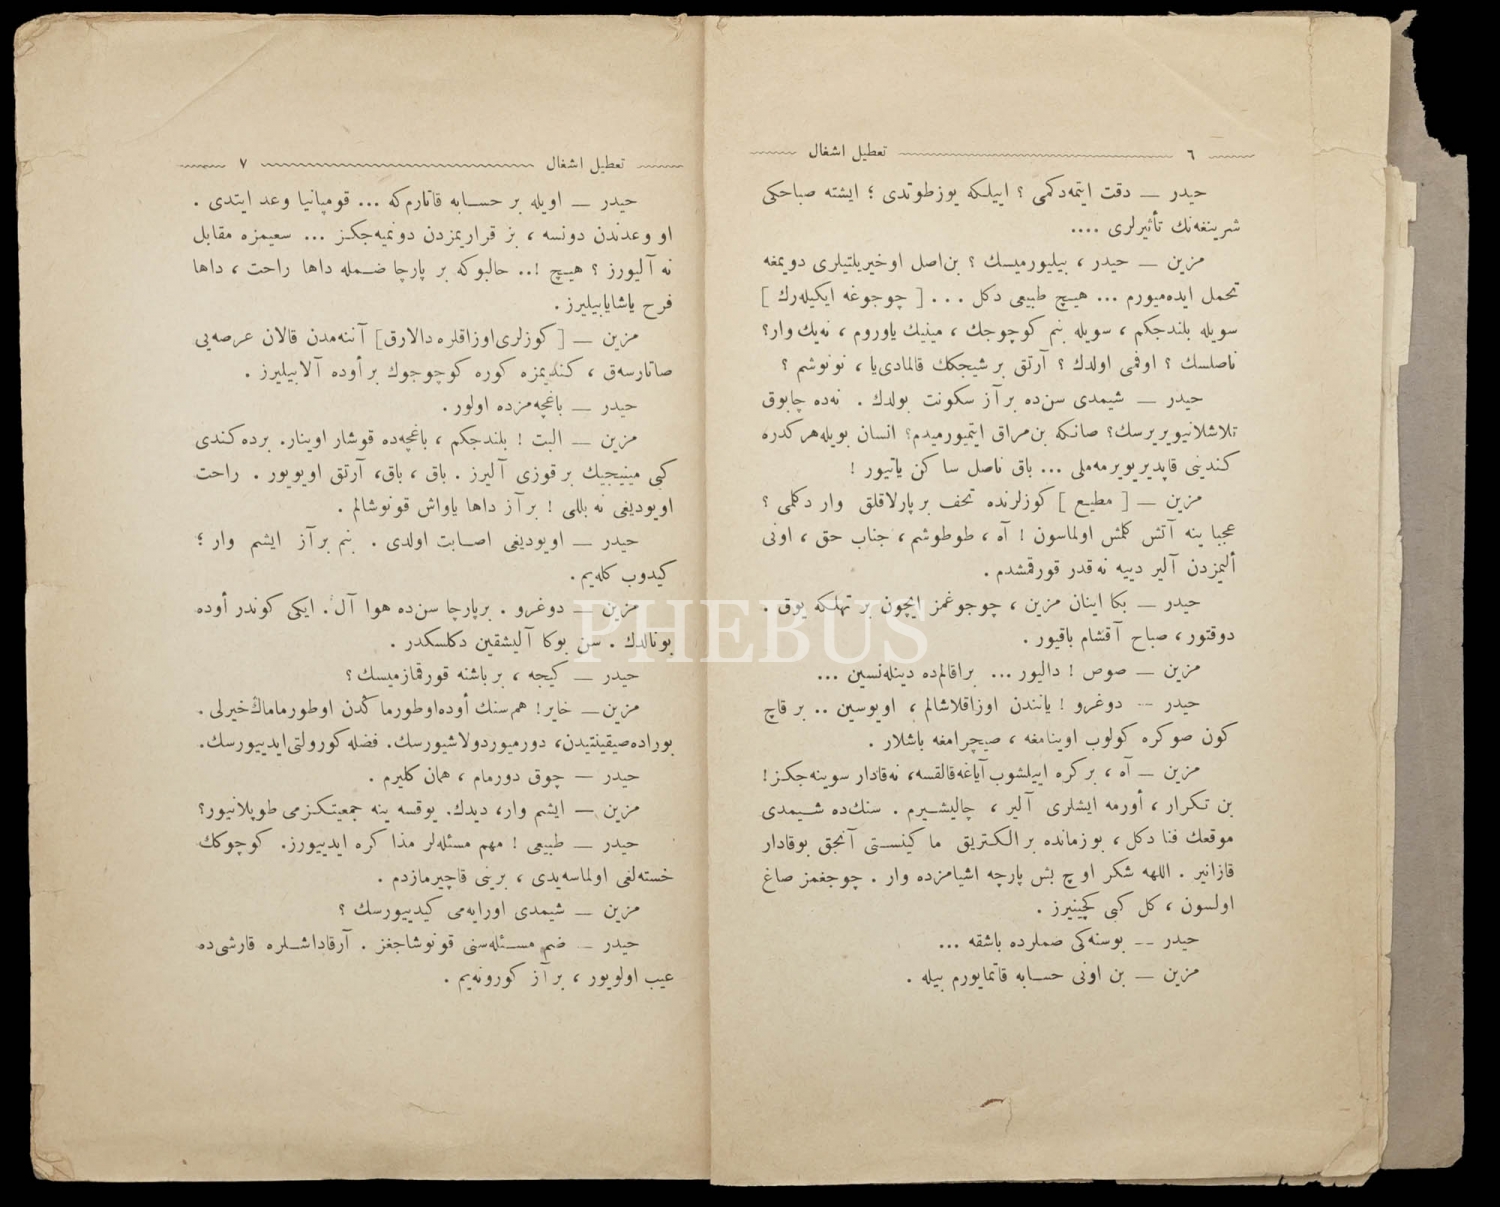 ٦ تعطيل اشغال
حيدر — دقت ايتمه‌دكمى ؟ اييلكه يوزطوتدى ؛ ايشته صباحكى
شرينغه‌نك تأثيرلرى ....
مزين — حيدر ، بيليورميسك ؟ بن‌اصل اوخيريلتيلرى دويمغه
تحمل ايده‌ميورم ... هيچ طبيعى دكل ... [ چوجوغه ايكيله‌رك ]
سويله بلندجكم ، سويله بنم كوچوجك ، مينيك ياوروم ، نه‌يك وار؟
ناصلسك ؟ اوفمى اولدك ؟ آرتق بر شيجكك قالمادى‌يا ، نونوشم ؟
حيدر — شيمدى سن‌ده بر آز سكونت بولدك . نه‌ده چابوق
تلاشلانيويريرسك؟ صانكه بن‌مراق ايتميورميدم؟ انسان بويله‌هركدره
كندينى قاپديريويرمه‌ملى ... باق ناصل ساكن ياتيور !
مزين — [ مطيع ] كوزلرنده تحف بر پارلاقلق وار دكلمى ؟
عجبا ينه آتش كلمش اولماسون ! آه ، طوطوشم ، جناب حق ، اونى
أليمزدن آلير دييه نه‌قدر قورقمشدم .
حيدر — بكا اينان مزين ، چوجوغمز ايچون بر تهلكه يوق .
دوقتور ، صباح آقشام باقيور .
مزين — صوص ! داليور ... براقالم‌ده دينله‌نسين ...
حيدر — دوغرو ! يانندن اوزاقلاشالم ، اويوسين .. بر قاچ
كون صوكره كولوب اوينامغه ، صيچرامغه باشلار .
مزين — آه ، بر كره اييلشوب آياغه‌قالقسه، نه‌قادار سوينه‌جكز !
بن تكرار ، أورمه ايشلرى آلير ، چاليشيرم . سنك‌ده شيمدى
موقعك فنا دكل ، بوزمانده بر الكتريق ماكينستى آنجق بوقادار
قازانير . اللهه شكر اوچ بش پارچه اشيامزده وار . چوجغمز صاغ
اولسون ، كل كبى كچينيرز .
حيدر — بوسنه‌كى ضملرده باشقه ...
مزين — بن اونى حسابه قاتمايورم بيله .
تعطيل اشغال ٧
حيدر — اويله بر حسابه قاتارم‌كه ... قومپانيا وعد ايتدى .
او وعدندن دونسه ، بز قراريمزدن دونميه‌جكز ... سعيمزه مقابل
نه آليورز ؟ هيچ !.. حالبوكه بر پارچا ضمله داها راحت ، داها
فرح ياشايابيليرز .
مزين — [ كوزلرى‌اوزاقلره‌دالارق] آننه‌مدن قالان عرصه‌يى
صاتارسه‌ق ، كنديمزه كوره كوچوجوك بر أوده آلابيليرز .
حيدر — باغچه‌مزده اولور .
مزين — البت ! بلندجكم ، باغچه‌ده قوشار اوينار. برده‌كندى
كبى مينيجيك بر قوزى آليرز . باق ، باق، آرتق اويويور . راحت
اويوديغى نه بللى ! بر آز داها ياواش قونوشالم .
حيدر — اويوديغى اصابت اولدى . بنم بر آز ايشم وار ؛
كيدوب كله‌يم .
مزين — دوغرو . برپارچا سن‌ده هوا آل . ايكى كوندر أوده
بونالدك . سن بوكا آليشقين دكلسكدر .
حيدر — كيجه ، بر باشنه قورقمازميسك ؟
مزين — خاير! هم‌سنك أوده‌اوطورماكدن اوطورماماڭ‌خيرلى .
بوراده‌صيقينتيدن، دورميوردولاشيورسك. فضله‌كورولتى‌ايدييورسك.
حيدر — چوق دورمام ، همان كليرم .
مزين — ايشم وار، ديدك. يوقسه ينه جمعيتكزمى طوپلانيور؟
حيدر — طبيعى ! مهم مسئله‌لر مذاكره ايدييورز. كوچوكك
خسته‌لغى اولماسه‌يدى ، برينى قاچيرمازدم .
مزين — شيمدى اورايه‌مى كيدييورسك ؟
حيدر — ضم مسئله‌سنى قونوشاجغز . آرقاداشلره قارشى‌ده
عيب اولويور ، بر آز كورونه‌يم .
PHEBUS